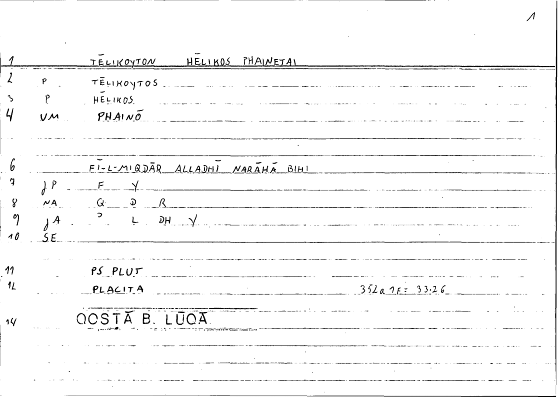 1
1 TĒLIKOYTON HĒLIKOS PHAINETAI
2 P TĒLIKOYTOS
3 P HĒLIKOS
4 VM PHAINŌ
6 FĪ-L-MIQDĀR ALLADHĪ NARĀHĀ BIHI
7 JP F Y
8 NA Q D R
9 JA ʾ L DH Y
10 SE
11 PS PLUT
12 PLACITA 352a 7F = 33.26
14 QOSṬĀ B. LŪQĀ